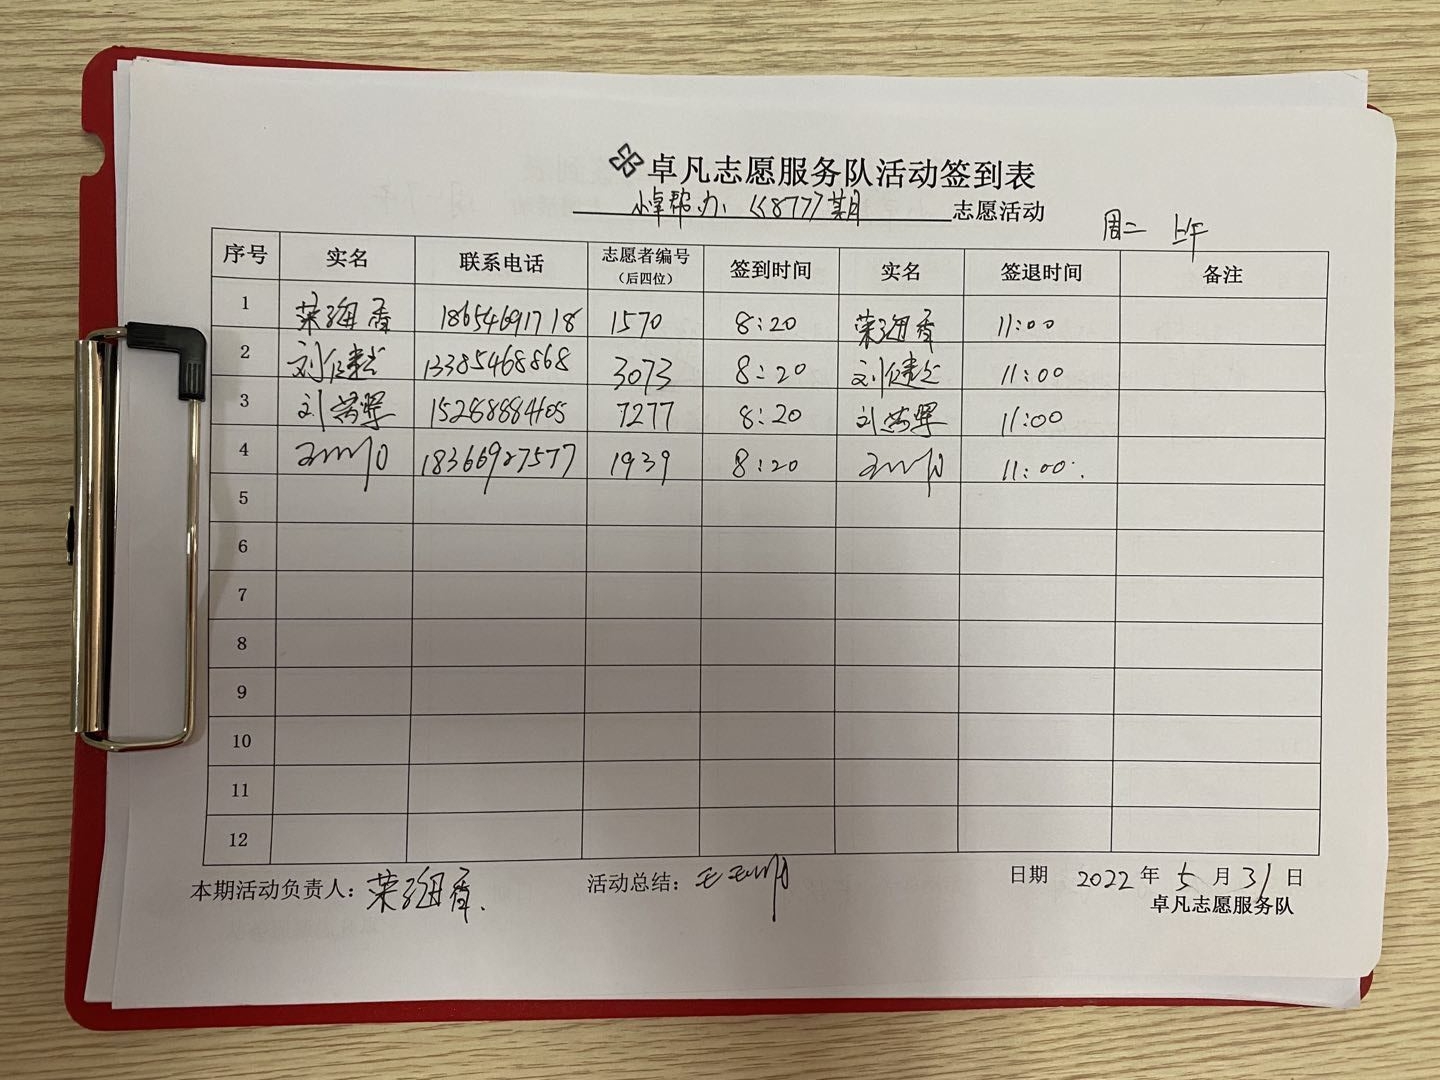 卓凡志愿服务队活动签到表
小卓帮办《877》期 志愿活动
周二 上午
序号 实名 联系电话 志愿者编号(后四位) 签到时间 实名 签退时间 备注
1 荣海香 18654691718 1570 8:20 荣海香 11:00
2 刘 13385468868 3073 8:20 刘 11:00
3 刘 15288884405 7277 8:20 刘 11:00
4 18366927577 1939 8:20 11:00
5
6
7
8
9
10
11
12
本期活动负责人:荣海香. 活动总结: 日期 2022年5月31日
卓凡志愿服务队